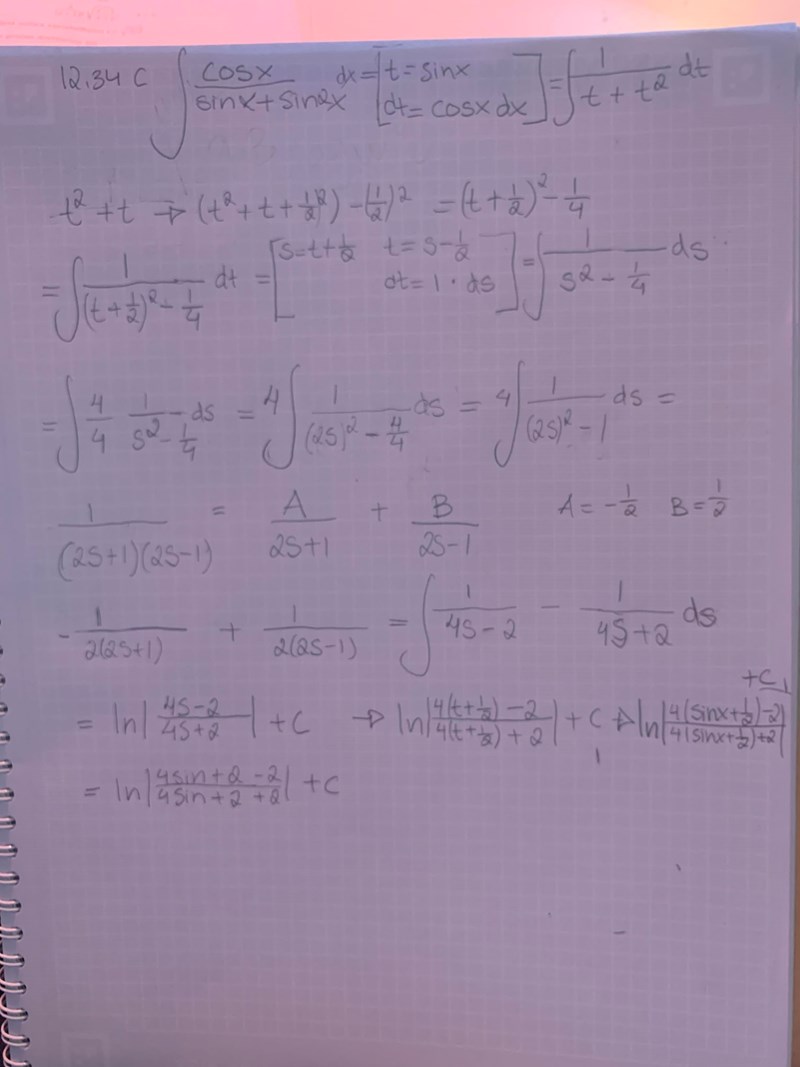 12.34 C ∫ cosx/(sinx+sin2x) dx = [t = sinx dt = cosx dx] = ∫ 1/(t + t²) dt
t² + t → (t² + t + (1/2)²) - (1/2)² = (t + 1/2)² - 1/4
= ∫ 1/((t + 1/2)² - 1/4) dt = [s = t + 1/2 t = s - 1/2 dt = 1 · ds] = ∫ 1/(s² - 1/4) ds
= ∫ 4/4 1/(s² - 1/4) ds = 4 ∫ 1/((2s)² - 4/4) ds = 4 ∫ 1/((2s)² - 1) ds =
1/((2s+1)(2s-1)) = A/(2s+1) + B/(2s-1) A = -1/2 B = 1/2
- 1/(2(2s+1)) + 1/(2(2s-1)) = ∫ 1/(4s-2) - 1/(4s+2) ds
= ln|(4s-2)/(4s+2)| + C → ln|(4(t+1/2) - 2)/(4(t+1/2) + 2)| + C, → ln|(4(sinx+1/2)-2)/(4(sinx+1/2)+2)| + C,
= ln|(4sin+2-2)/(4sin+2+2)| + C